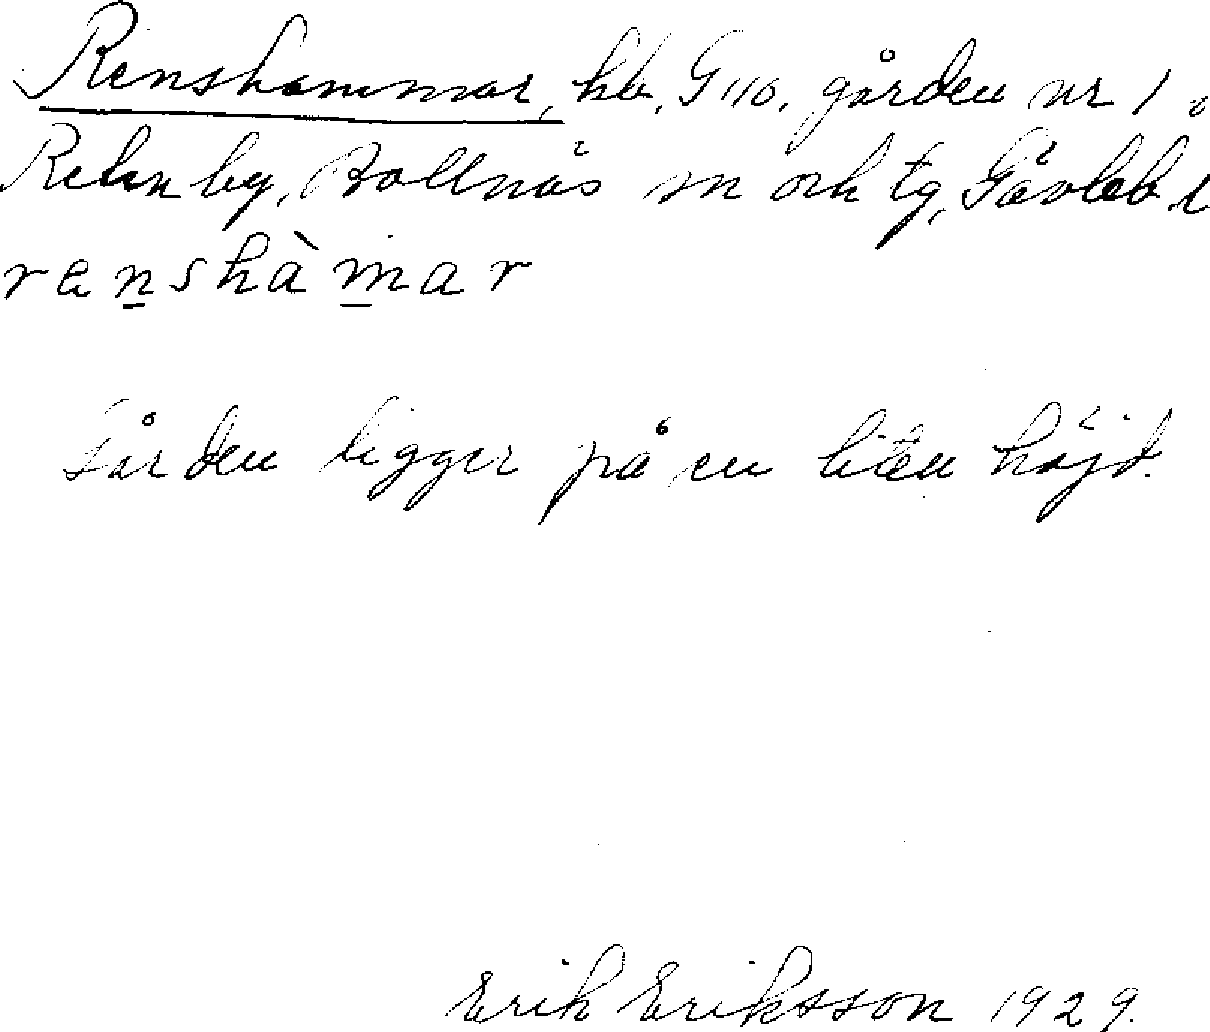 Renshammar, hb, G 110. gården nr 1 i
Rehn by, Bollnäs sn och tg, Gävleb. l
renshàmar
Gården ligger på en liten höjd.
Erik Eriksson 1929.